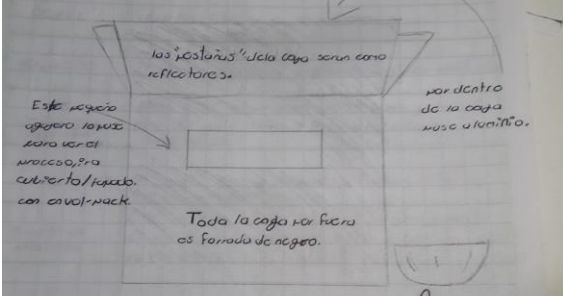 las "pestañas" de la caja seran como
reflectores.
por dentro
de la caja
puse aluminio.
Este pequeño
agujero lo puse
para ver el
proceso, ira
cubierto/tapado.
con envol-pack.
Toda la caja por fuera
es forrada de negro.